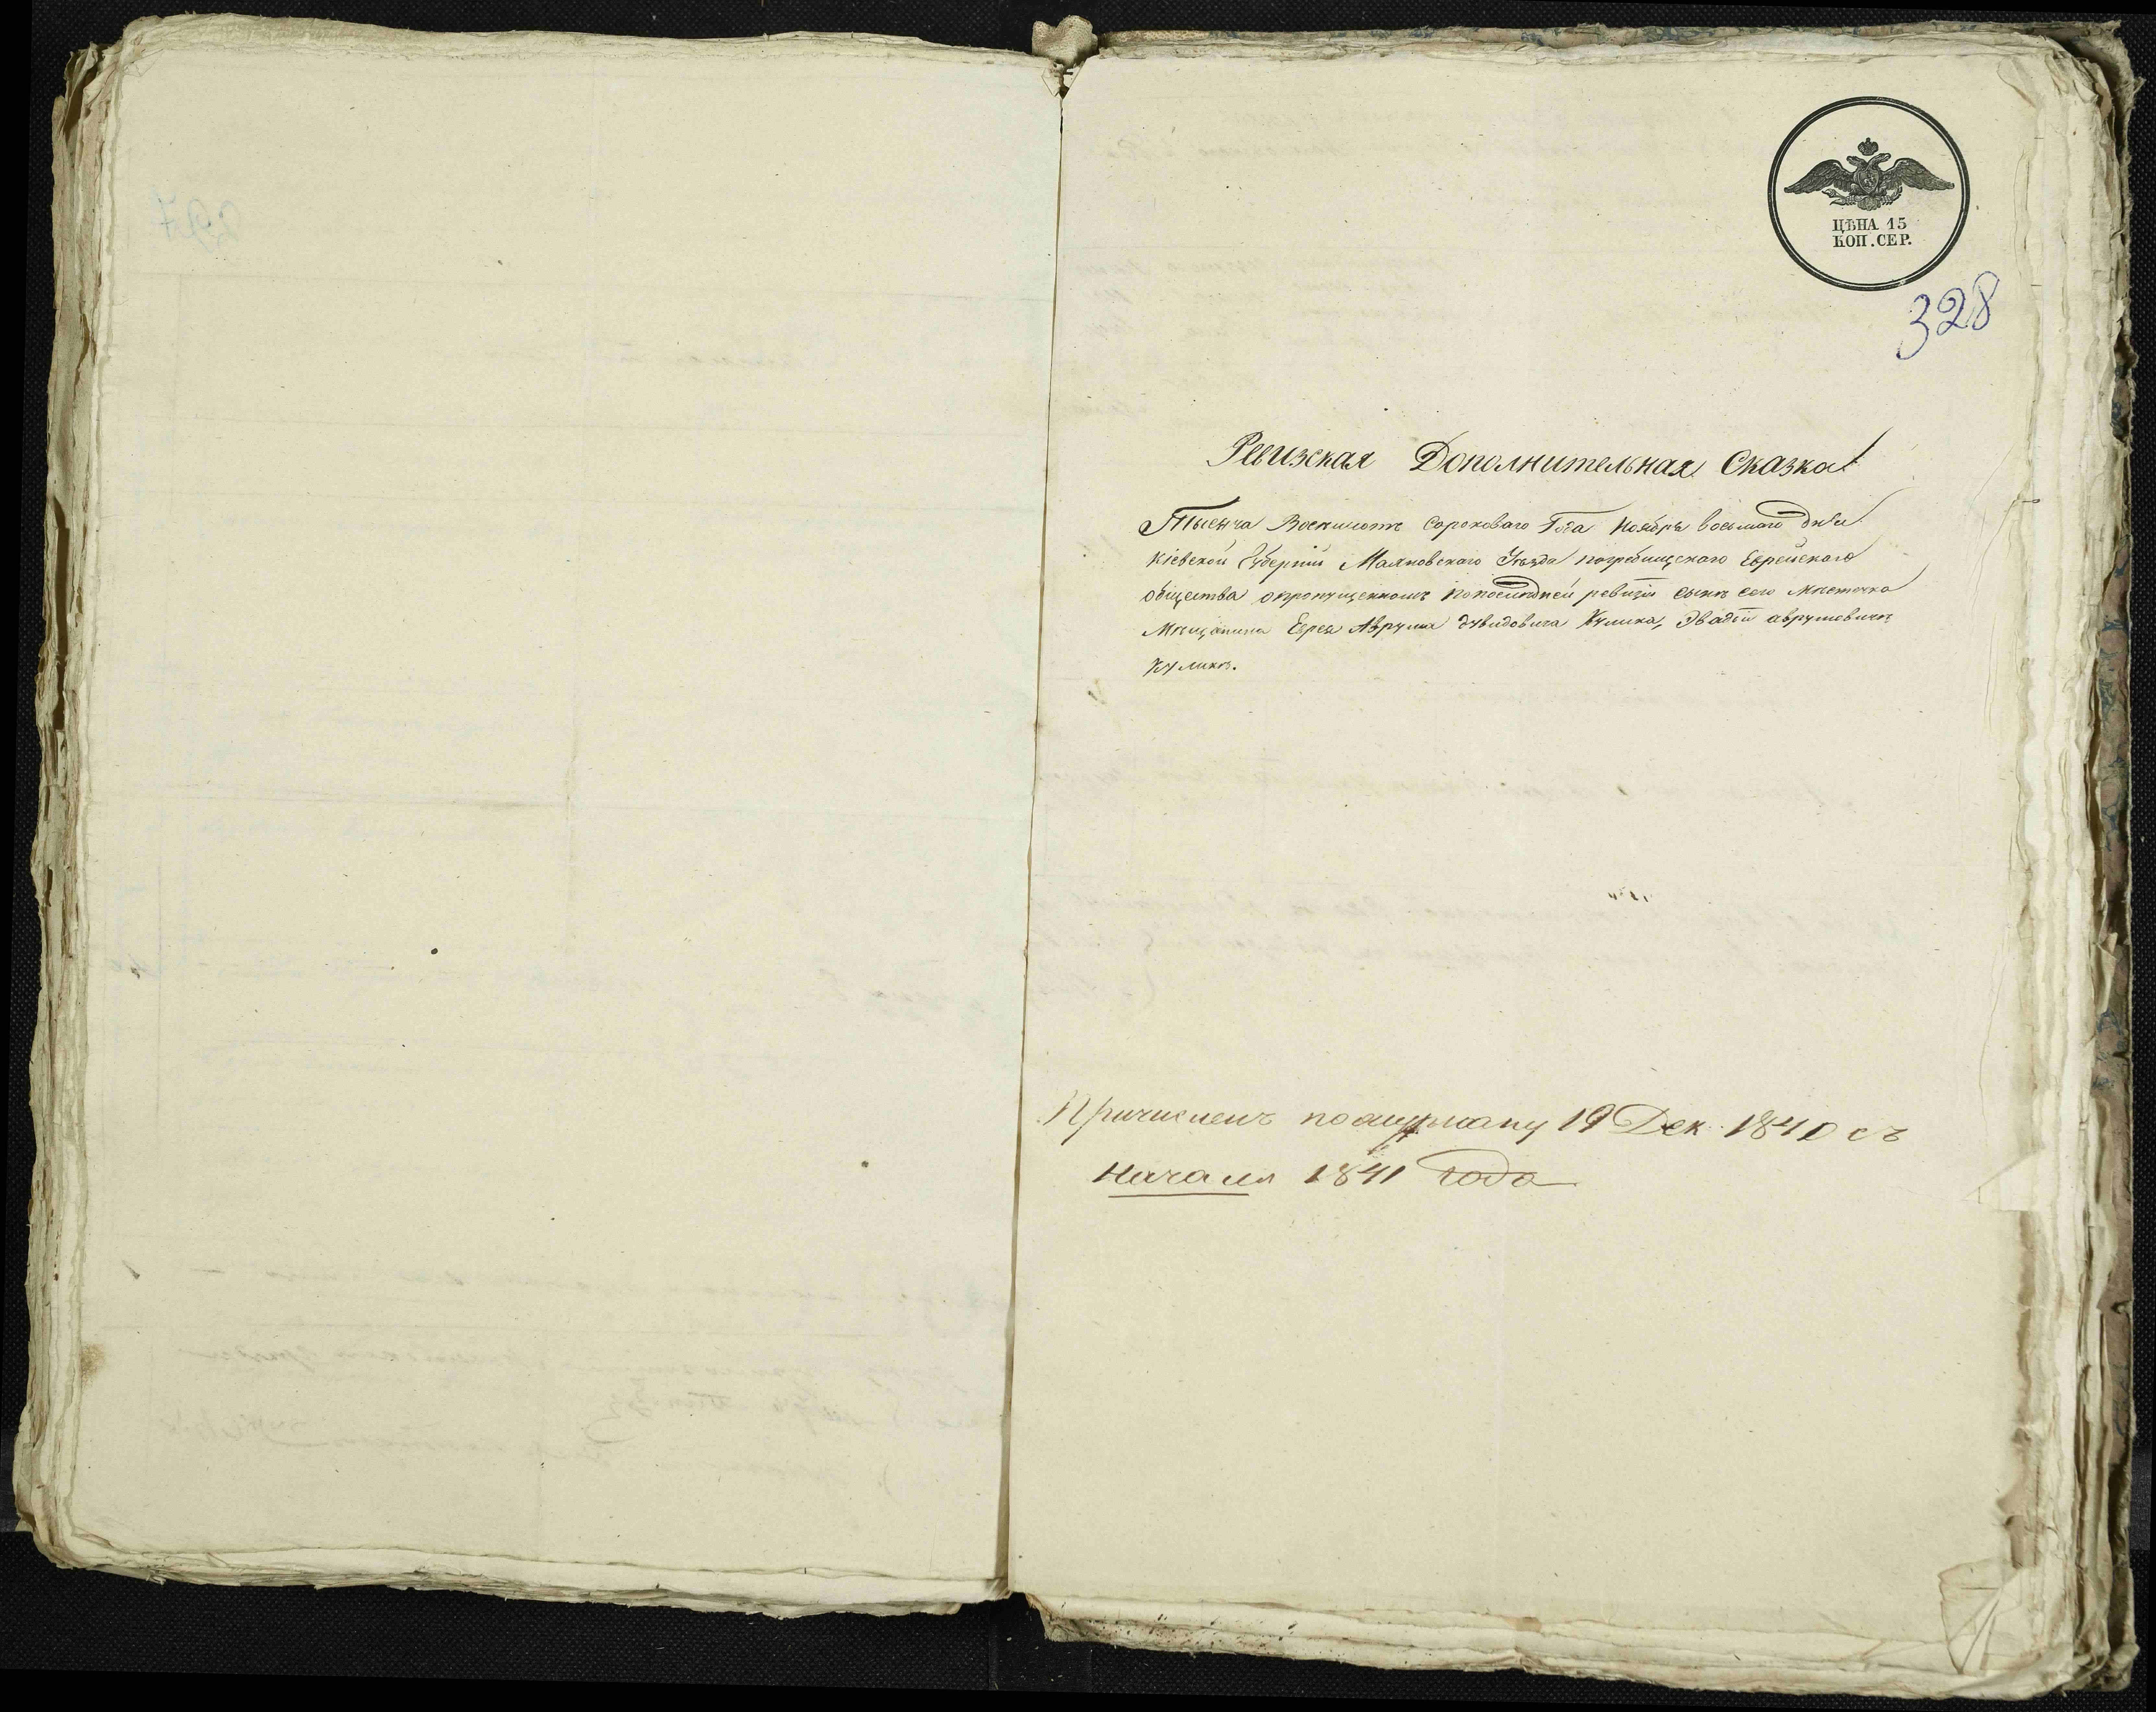 ЦѢНА 15
КОП. СЕР.
328
Ревизская Дополнительная Сказка
Тысяча Восимсотъ Сороковаго Года Ноября восьмаго дня
Кіевской Губерніи Махновскаго Уѣзда погребищскаго Еврейскаго
общества опропущенномъ попоследней ревизіи сынѣ сего мѣстечка
Мѣщанина Еврея Аврума дувидовича Кулика, аврумовичъ
Куликъ.
Причисленъ 19 Дек 1840 съ
начала 1841 года